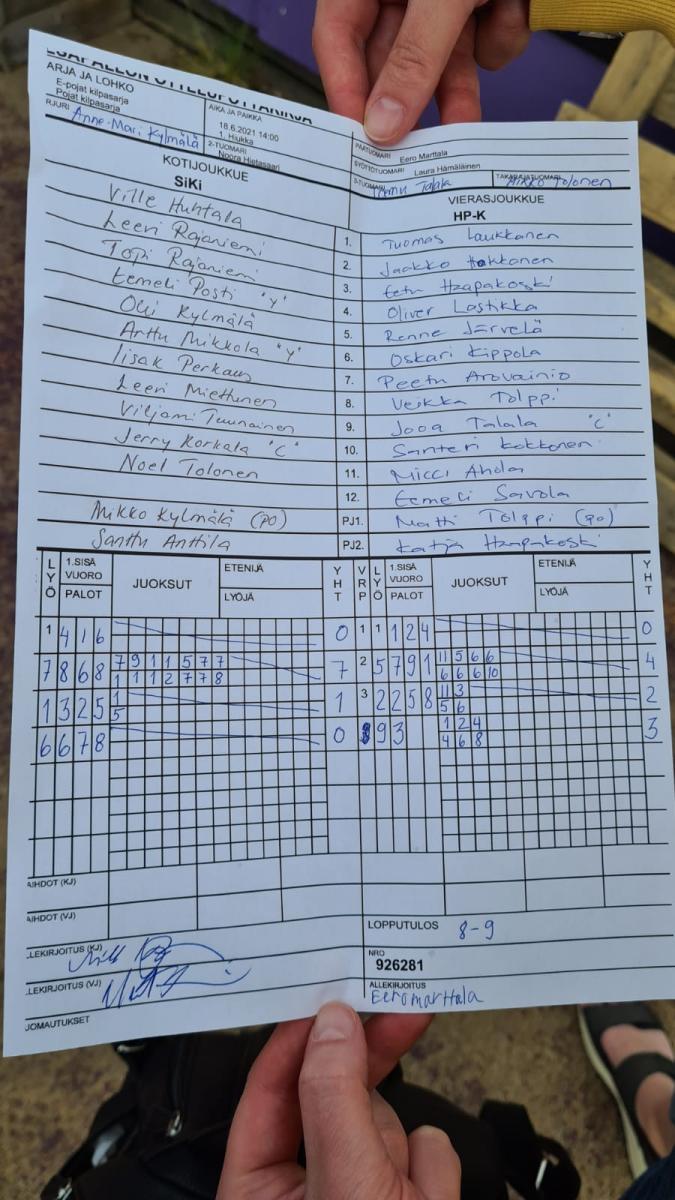 ARJA JA LOHKO
E-pojat kilpasarja
Pojat kilpasarja
AIKA JA PAIKKA
18.6.2021 14:00
1. Hiukka
RJURI
Anne-Mari Kylmälä
2-TUOMARI
Noora Hietasaari
Eero Marttala
SYÖTTÖTUOMARI Laura Hämäläinen
Talala
Tolonen
KOTIJOUKKUE
SiKi
VIERASJOUKKUE
HP-K
Ville Huhtala
Leevi Rajaniemi
Topi Rajaniemi
Eemeli Posti "Y"
Olli Kylmälä
Arttu Mikkola "Y"
Iisak Perkaus
Leevi Miettunen
Viljami Tuunainen
Jerry Korkala "C"
Noel Tolonen
Mikko Kylmälä (PO)
Santtu Anttila
1. Tuomas Laukkanen
2. Jaakko Hakkonen
3. Eetu Haapakoski
4. Oliver Lastikka
5. Renne Järvelä
6. Oskari Kippola
7. Peetu Arovainio
8. Veikka Tolppi
9. Jooa Talala "C"
10. Santeri Kokkonen
11. Micci Ahola
12. Eemeli Savola
PJ1. Matti Tolppi (PO)
PJ2. Katja Haapakoski
LYÖ 1.SISÄ VUORO PALOT JUOKSUT ETENIJÄ LYÖJÄ YHT VRP LYÖ 1.SISÄ VUORO PALOT JUOKSUT ETENIJÄ LYÖJÄ YHT
1 4 1 6 0 1 1 1 2 4 0
7 8 6 8 7 9 1 1 5 7 7 7 2 5 7 9 1 11 5 6 6 4
1 1 1 2 7 7 8 6 6 6 10
1 3 2 5 1 1 3 2 2 5 8 11 3 2
5 5 6
6 6 7 8 0 9 3 1 2 4 3
4 6 8
AIHDOT (KJ)
AIHDOT (VJ)
LOPPUTULOS 8-9
LEKIRJOITUS (KJ)
LEKIRJOITUS (VJ)
NRO
926281
ALLEKIRJOITUS
Eero Marttala
JOMAUTUKSET